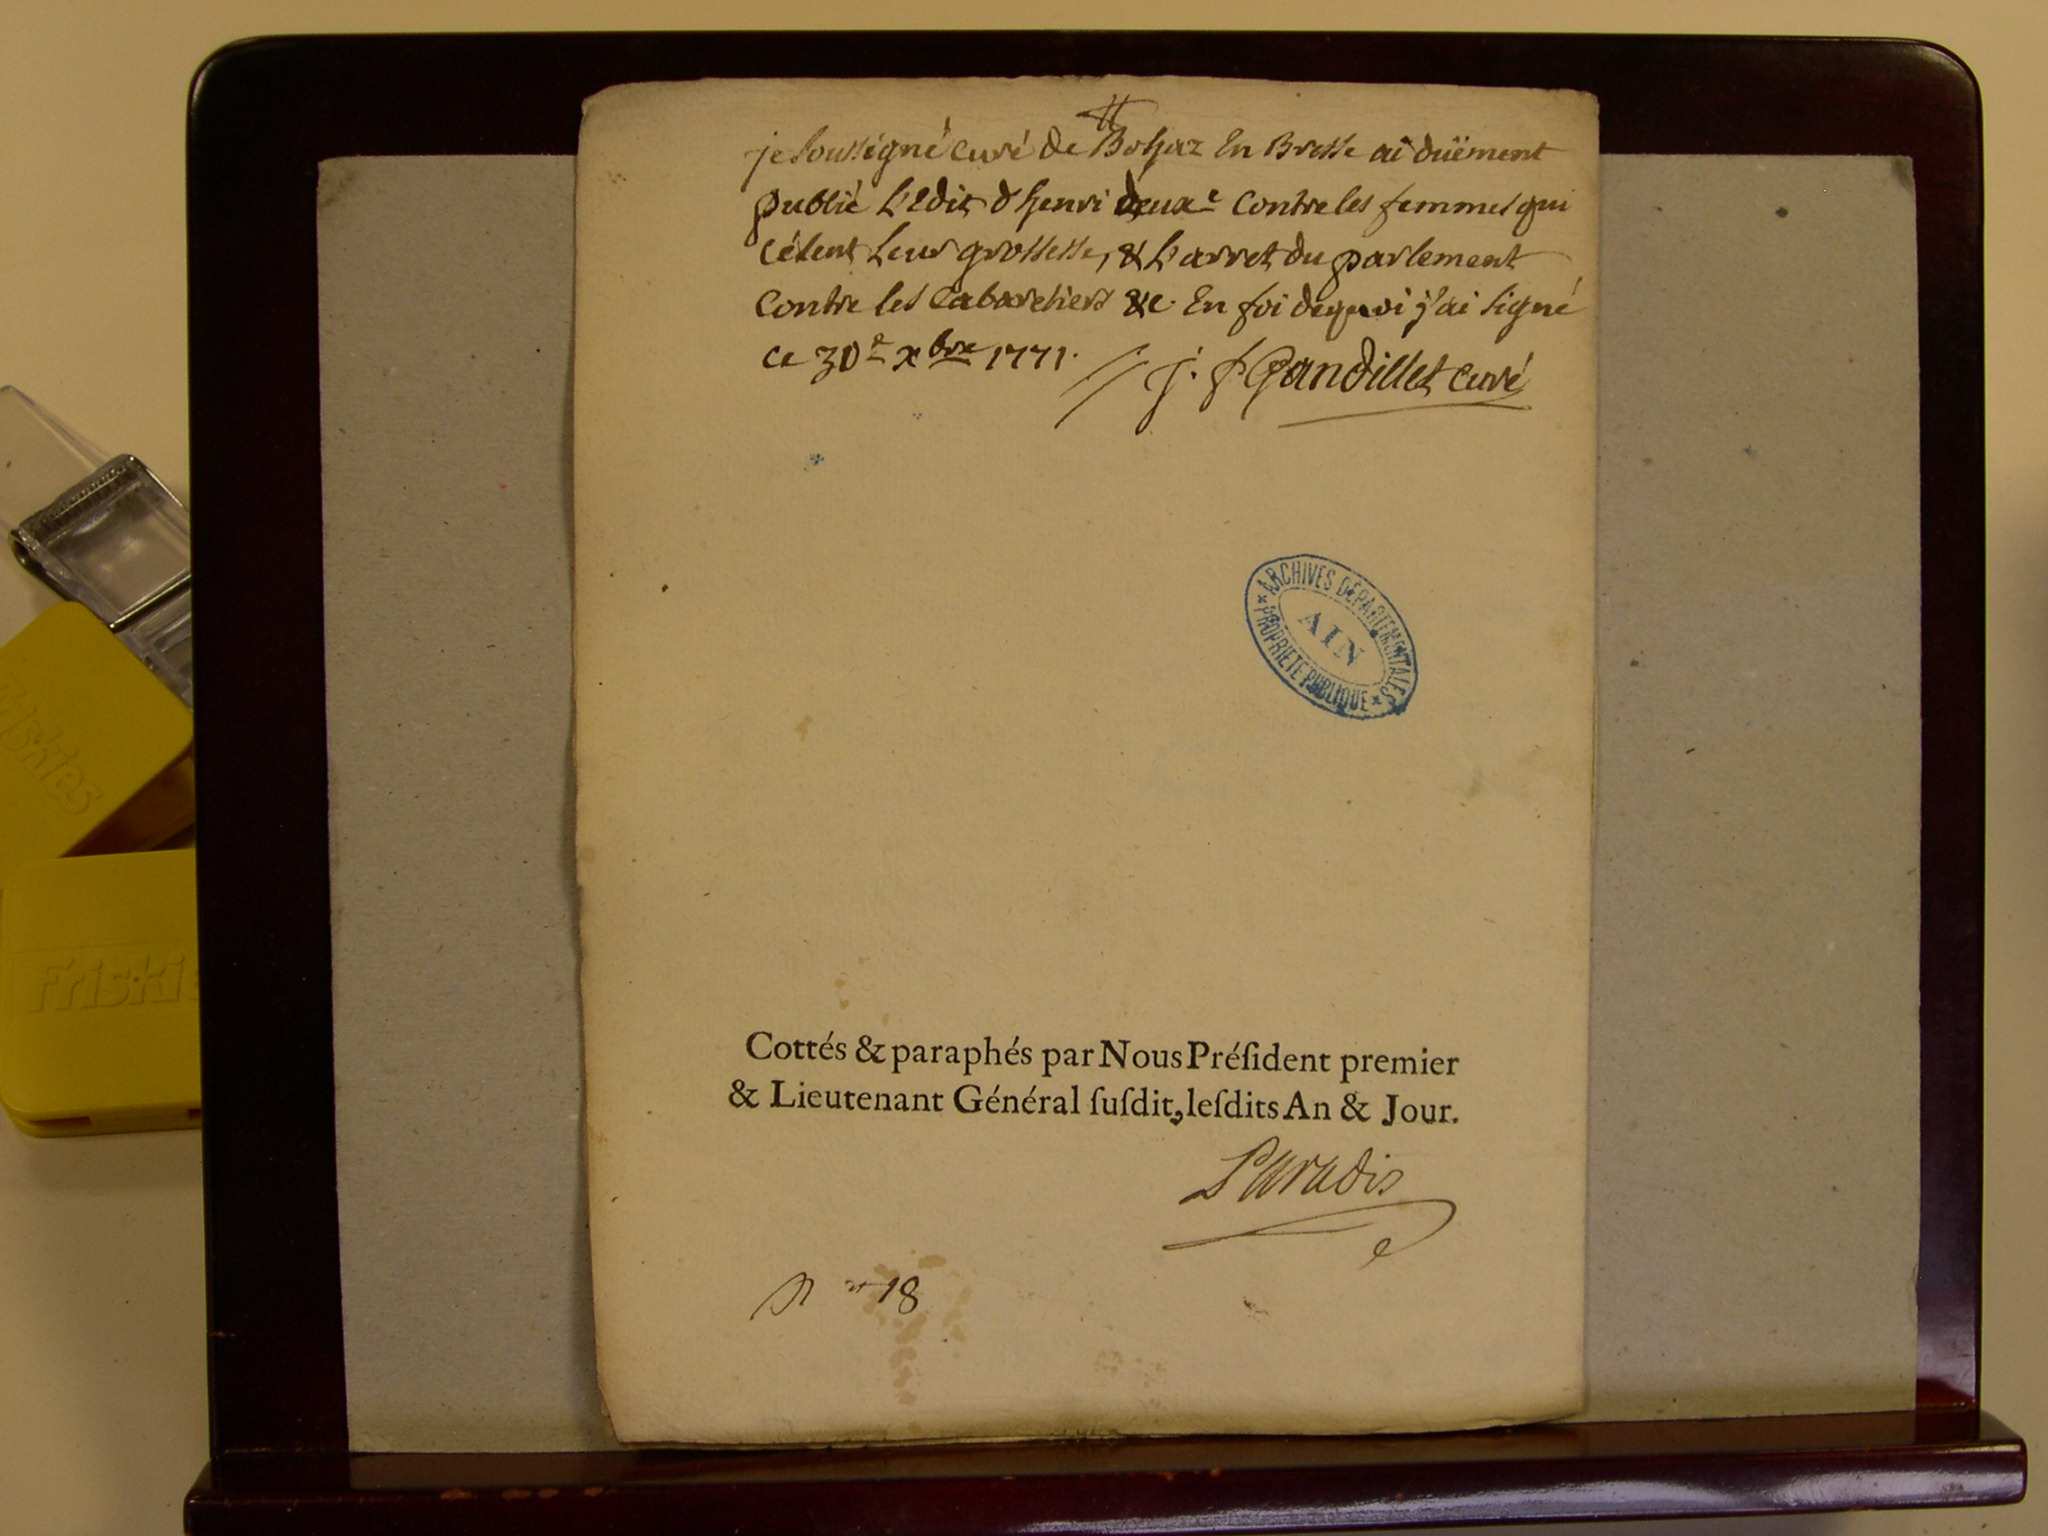 je soussigné curé de Bohaz En Bresse ai duëment
publié L'Edit d'henri deuxe Contre les femmes qui
cèlent Leur grossesse, & L'arret du parlement
Contre les Cabaretiers &c. En foi dequoi j'ai signé
ce 30e xbre 1771.
j. f. Gandillet curé
ARCHIVES DÉPARTEMENTALES
AIN
PROPRIÉTÉ PUBLIQUE
Cottés & paraphés par Nous Préſident premier
& Lieutenant Général ſuſdit, leſdits An & Jour.
Paradis
18
Friskies
Friskie